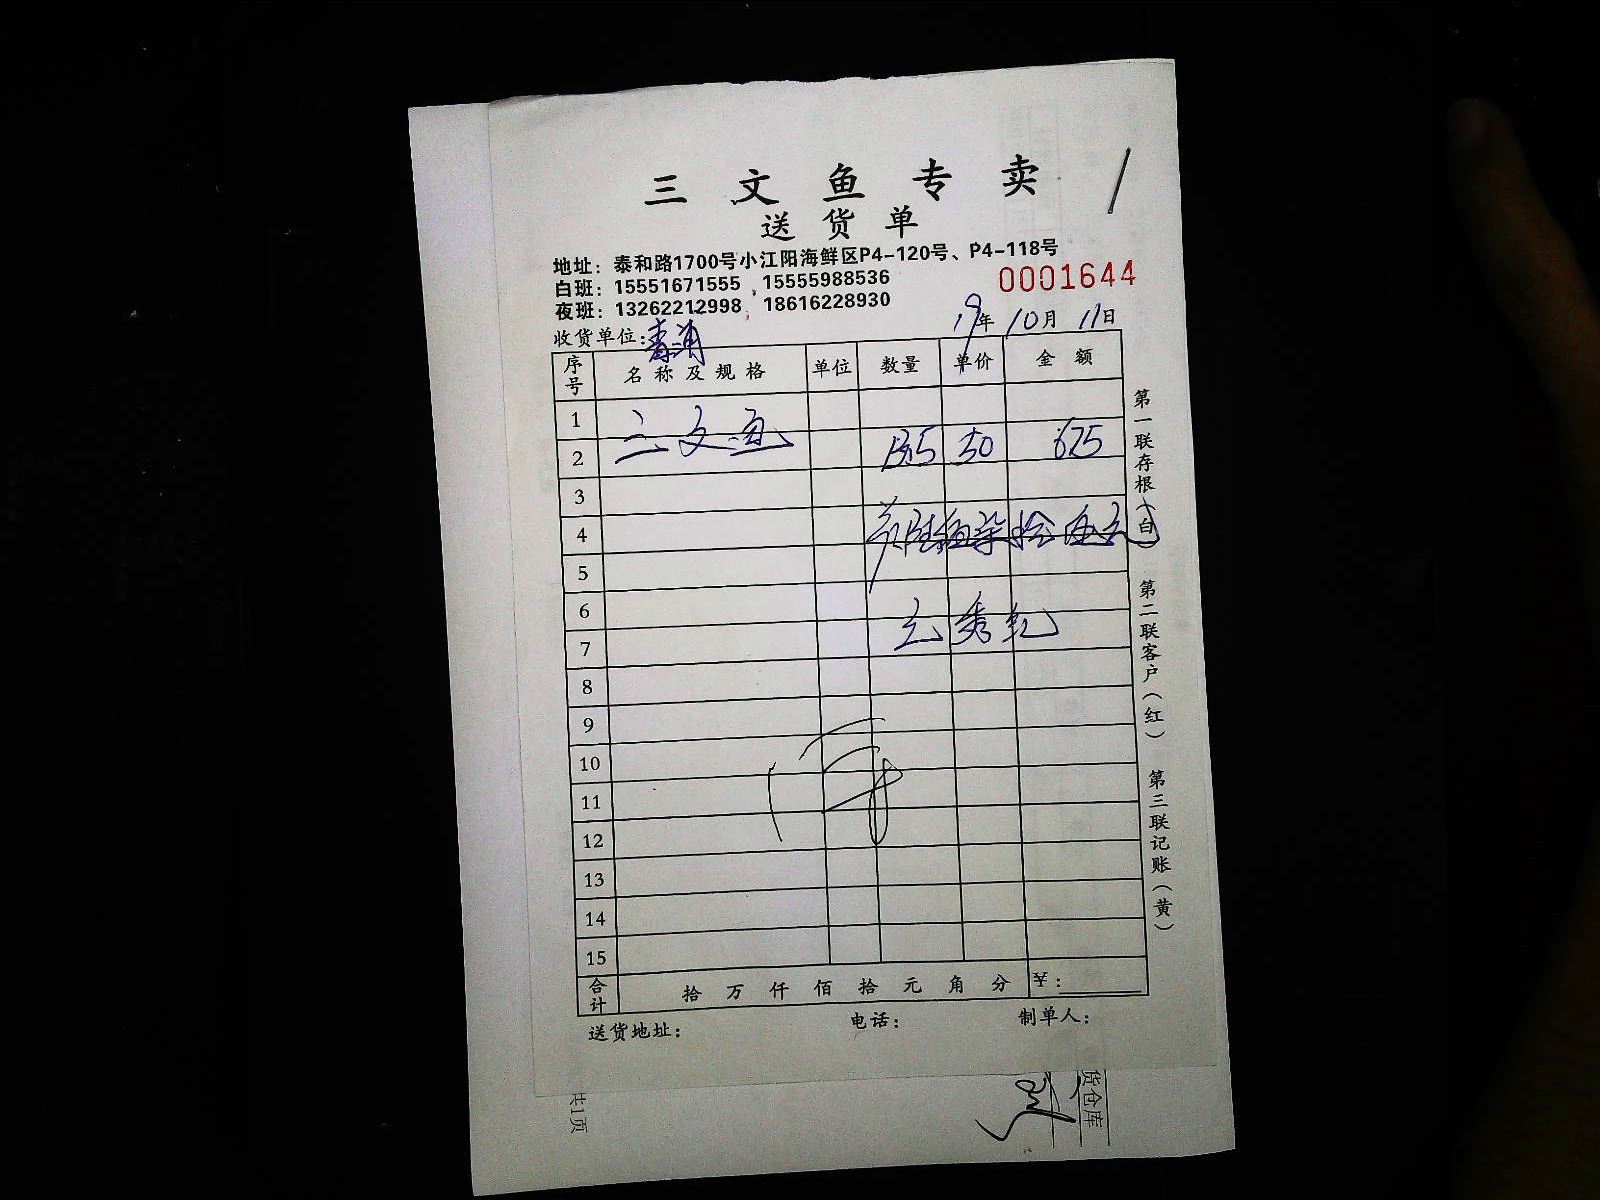 三文鱼专卖
送货单
地址：泰和路1700号小江阳海鲜区P4-120号、P4-118号
白班：15551671555，15555988536
0001644
夜班：13262212998，18616228930
收货单位：青浦
19年10月11日
序号 名称及规格 单位 数量 单价 金额
1
2 三文鱼 13.5 50 675
3
4 陆佰柒拾伍元
5
6
7
8
9
10
11
12
13
14
15
合计 拾 万 仟 佰 拾 元 角 分 ￥：
送货地址： 电话： 制单人：
第一联存根（白） 第二联客户（红） 第三联记账（黄）
共1页
货仓库